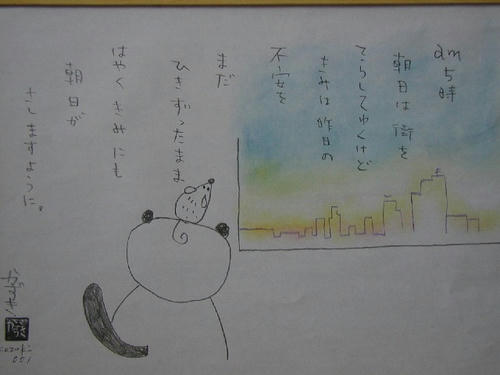 am5時
朝日は街を
てらしてゆくけど
きみは昨日の
不安を
まだ
ひきずったまま
はやくきみにも
朝日が
さしますように。
かずき